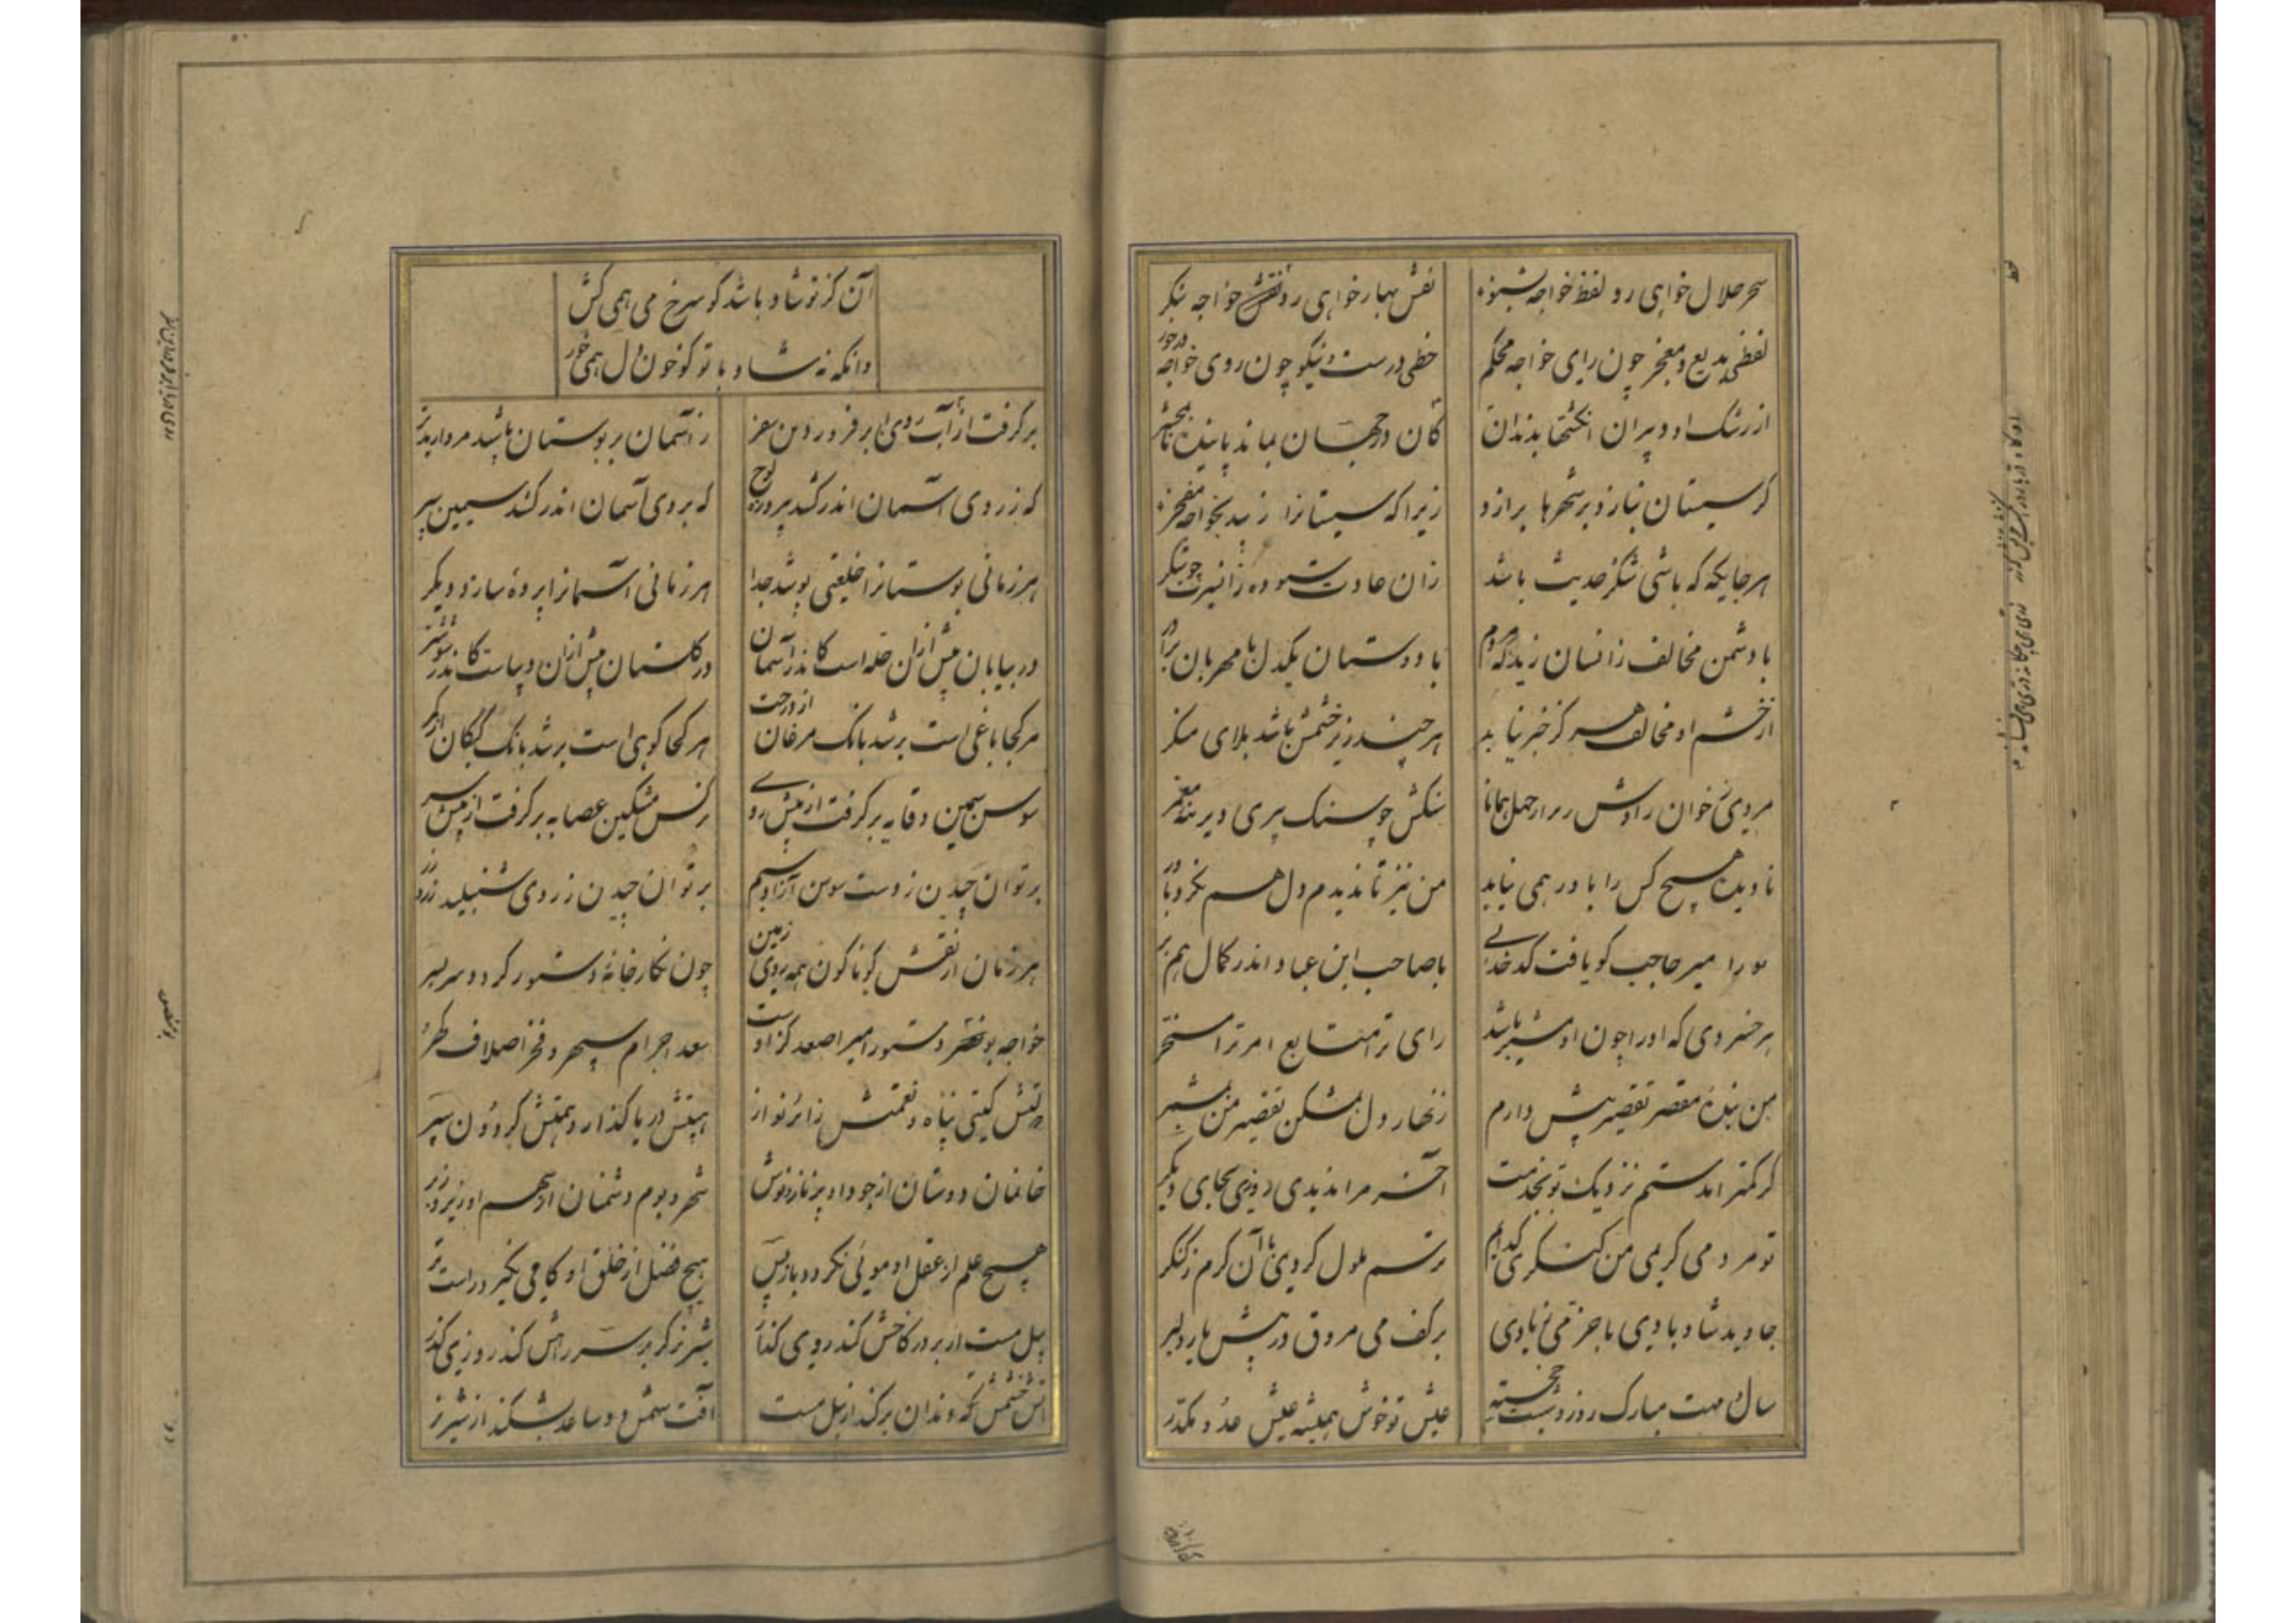 سحر حلال خواهی رو لفظ خواجه بشنو نقش بهار خواهی رو نقش خواجه بنگر
لفظی بدیع و معجز چون رای خواجه محکم خطی درست و نیکو چون روی خواجه درخور
از رشک او دبیران انگشتها بدندان کان در جهان بماند پاینده تا بمحشر
گر سیستان بنازد بر شهرها برازد زیرا که سیستانرا زیبد بخواجه مفخر
هر جایگه که باشی شکر حدیث باشد زان عادت ستوده زان سیرت چو شکر
با دشمن مخالف زانسان زید که مردم با دوستان یکدل با مهربان برادر
از خشم او مخالف هرگز خبر نیابد هر چند زیر خشمش باشد بلای منکر
سنگش چو سنگ پیری دیرینه معمر
تا دیده هیچ کس را باور همی نیاید من نیز تا ندیدم دل هم نکرد باور
میر حاجب کو یافت کدخدایی با صاحب ابن عباد اندر کمال هم بر
هر خسروی که او را چون او مشیر باشد رای ترا متابع امر ترا مسخر
من بندهٔ مقصر تقصیر بیش دارم زنهار دل بمشکن تقصیر من بمشمر
گر کمتر آمدستم نزدیک تو بخدمت آخر مرا ندیدی روزی بجای دیگر
تو مردمی کریمی من کنگری گدایم ترسم ملول گردی با آن کرم ز کنگر
جاوید شاد بادی با خرمی زیادی بر کف می مروق در پیش یار دلبر
سال مهت مبارک روز و شبت خجسته عیش تو خوش همیشه عیش عدو مکدر
آن کز تو شاد باشد گو سرخ می همی کش
وانکه نه شاد با تو گو خون دل همی خور
بر گرفت از آب روی ابر فروردین سفر ز آسمان بر بوستان باشید مروارید تر
گه ز روی آسمان اندر کشد پیروزه لوح گه بروی آسمان اندر کشد سیمین سپر
هر زمانی بوستانرا خلعتی پوشد جدا هر زمانی آسمانرا پردهٔ سازد دگر
در بیابان بیش از آن حله است کاندر آسمان در گلستان بیش از آن دیباست کاندر شوشتر
هر کجا باغی است بر شد بانگ مرغان از درخت هر کجا کوهی است بر شد بانگ کبکان از کمر
سوسن سیمین وقایه بر گرفت از پیش روی نرگس مشکین عصابه بر گرفت از پیش سر
بر توان چیدن ز دست سوسن آزاد سیم بر توان چیدن ز روی شنبلید زرد زر
هر زمان از نقش گوناگون همه روی زمین چون نگارخانهٔ دستور گردد سربسر
سعد اجرام سپهر و فخر اصلاف گهر
گیتی پناه و نعمتش زائر نواز هیبتش دریا گذار و همتش گردون سپر
خانمان دوستان از جود او پر ناز و نوش شهر و بوم دشمنان از سهم او زیر و زبر
هیچ علم از عقل او موئی نگردد باز پس هیچ فضل از خلق او گامی نگیرد راستر
پیل مست ار بر در کاخش کند روزی گذار شیر نر گر بر سر راهش کند روزی گذر
آتش خشمش دو دندان بر کند از پیل مست آفت سهمش دو ساعد بشکند از شیر نر